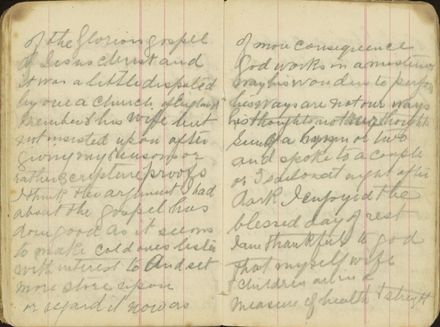 of the Glorious gospel
of Jesus Christ and
it was a little disputed
by one a Church of England
member & his wife but
not insisted upon after
giving my reasons or
rather scripture proofs
I think the argument I had
about the gospel has
done good as it seems
to make cold ones listen
with interest to and set
more store upon
or regard it now as
of more consequence
God works in a mysterious
way his wonders to perform
his ways are not our ways
his thoughts not our thoughts
Sung a hymn or two
and spoke to a couple
or I do
at night after
dark I enjoyed the
blessed day of rest
I am thankful to god
that myself wife
& children are in a
measure of health & strength